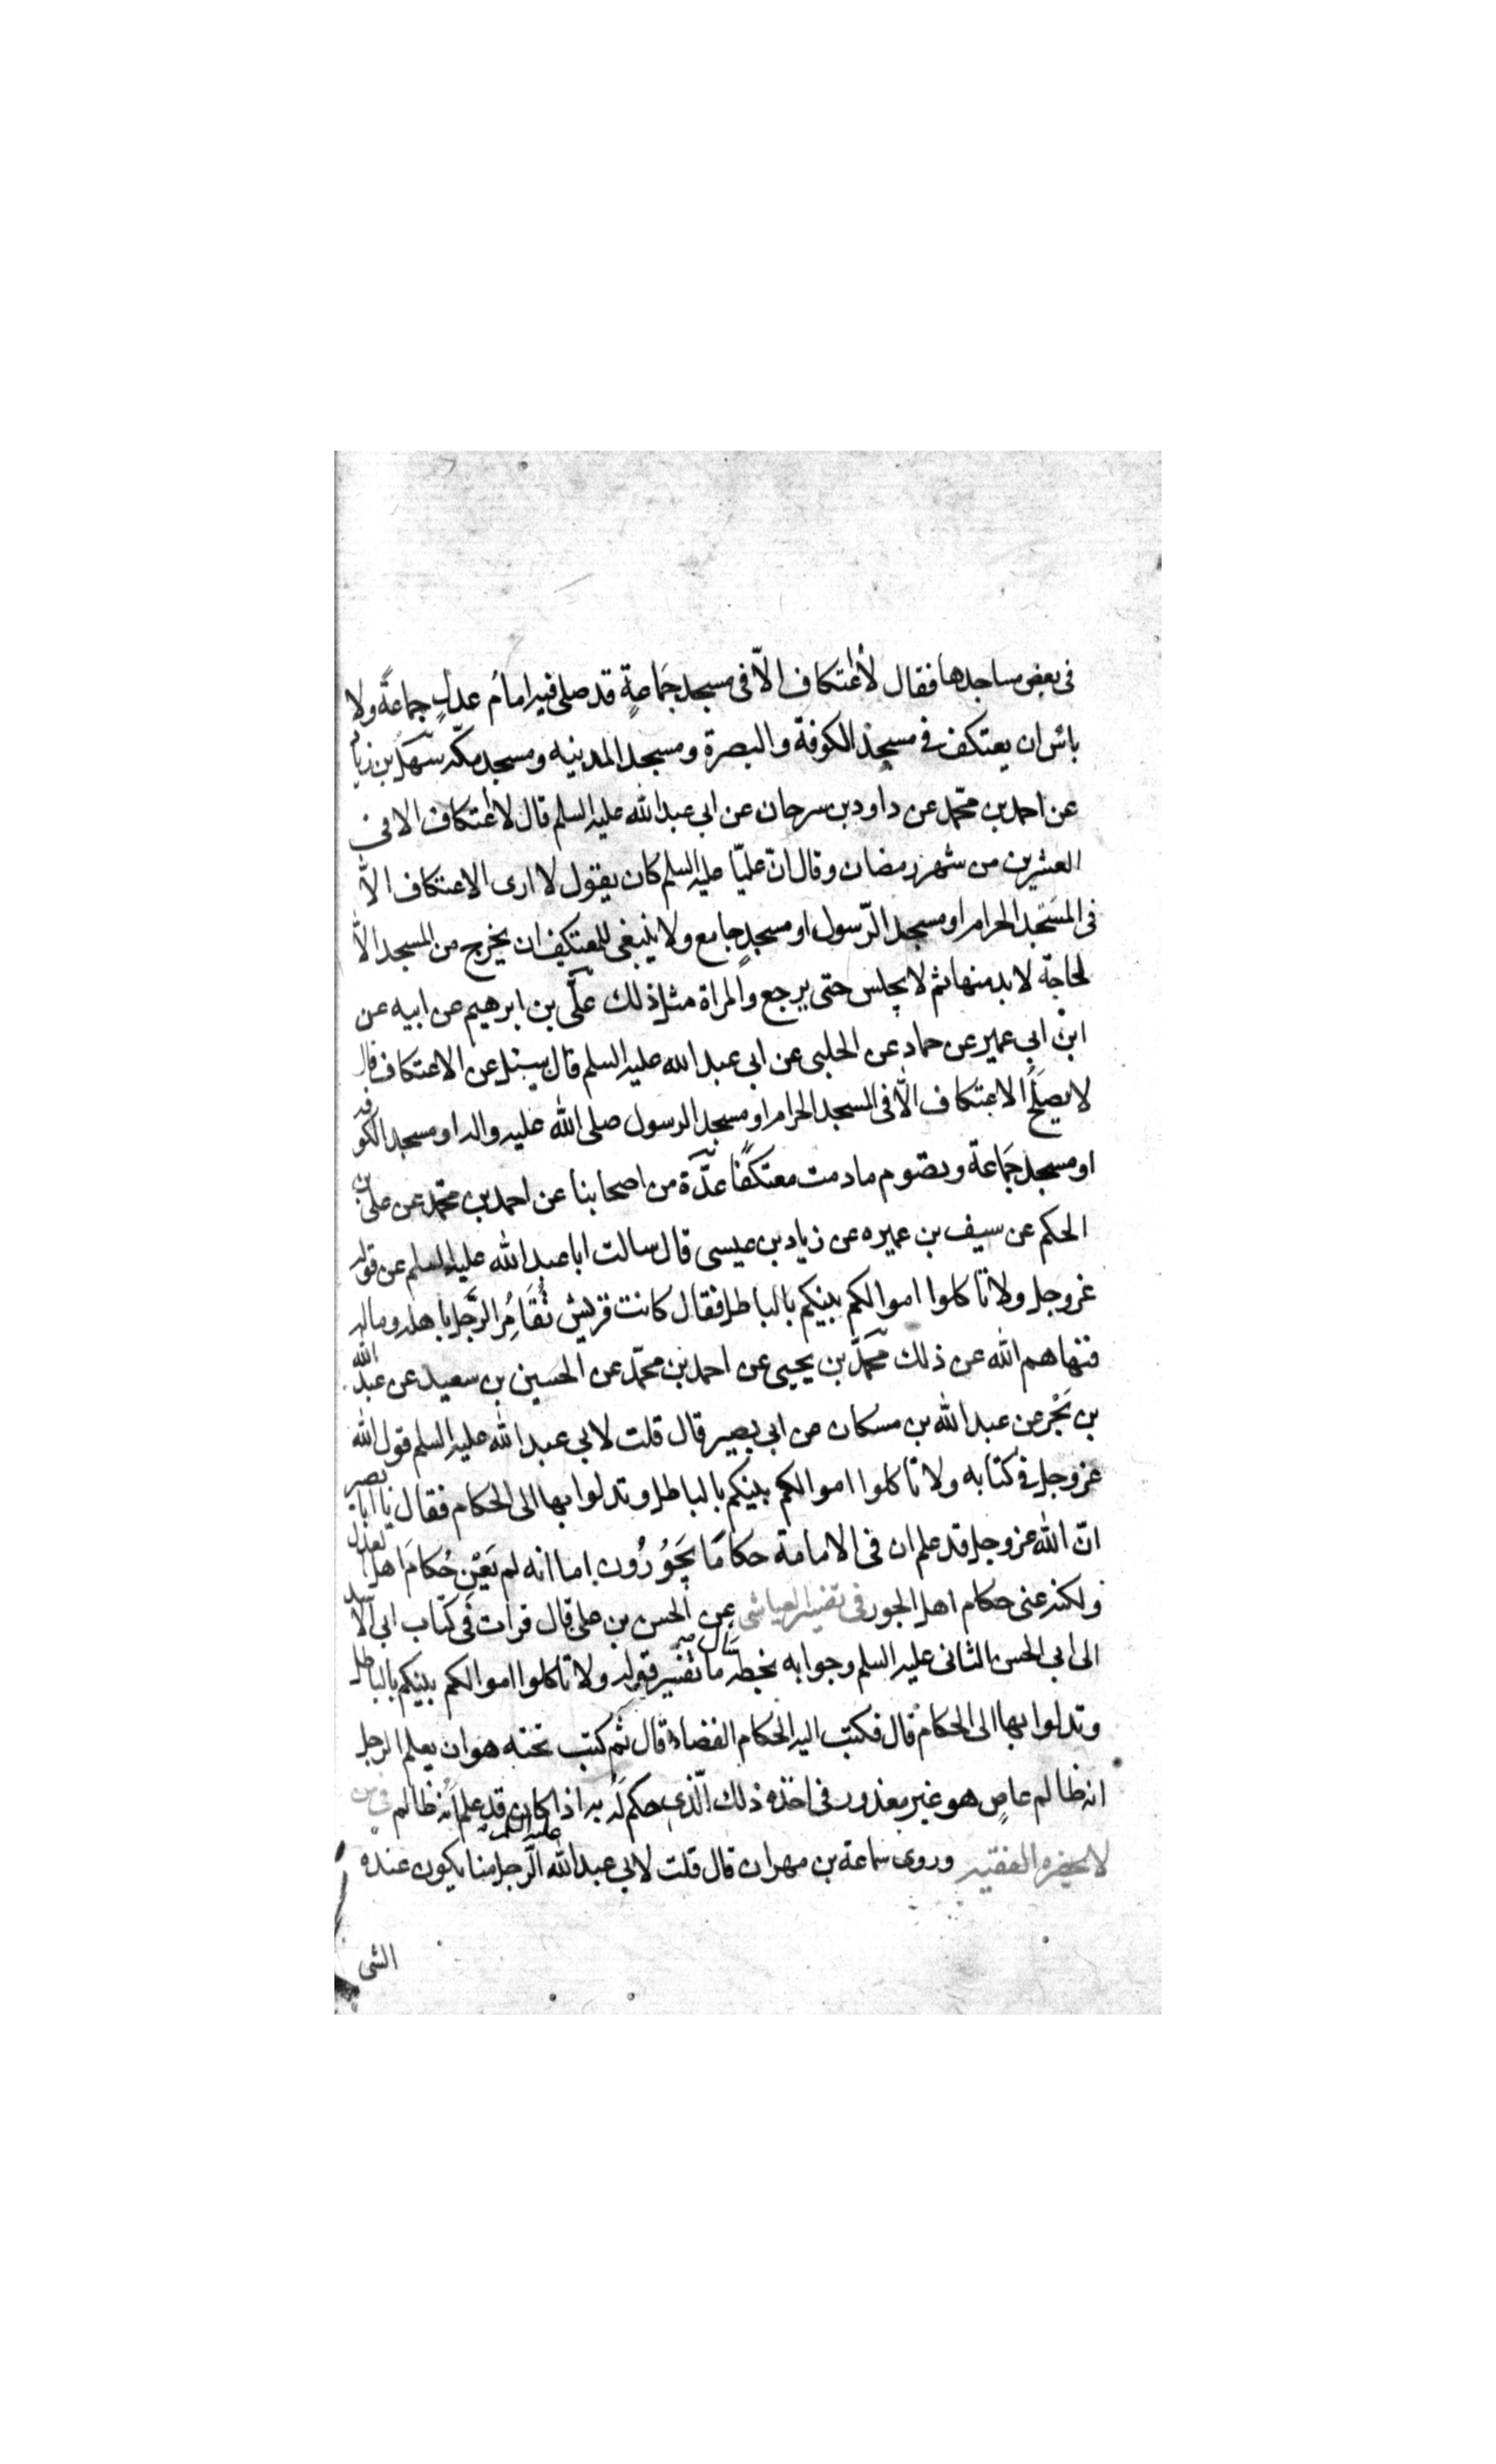 فى بعض مساجدها فقال لا اعتكاف الّا فى مسجد جَماعةٍ قد صلى فيه امامُ عدلٍ جماعةً ولا
باس ان يعتكف فى مسجد الكوفة والبصرة ومسجد المدينه ومسجد مكّه سَهل بن زياد
عن احمد بن محمّد عن داود بن سرحان عن ابى عبد الله عليه السلم قال لا اعتكاف الا فى
العشرين من شهر رمضان وقال انّ عليّا عليه السلم كان يقول لا ارى الاعتكاف الّا
فى المسَجد الحرام او مسجد الرّسول او مسجدٍ جامع ولا ينبغى للمعتكف ان يخرج من المسجد الّا
لحاجة لا بد منها ثم لا يجلس حتى يرجع والمراة مثل ذلك علّى بن ابرهيم عن ابيه عن
ابن ابى عمير عن حماد عن الحلبى عن ابى عبد الله عليه السلم قال سئل عن الاعتكاف قال
لا يصلح الاعتكاف الّا فى المسجد الحرام او مسجد الرسول صلى الله عليه واله او مسجد الكوفه
او مسجد جَماعة وتصوم مادمت معتكفًا عدّة من اصحابنا عن احمد بن محمّد عن على بن
الحكم عن سيف بن عميره عن زياد بن عيسى قال سالت ابا عبد الله عليه السلم عن قوله
عزوجل ولا تاكلوا اموالكم بينكم بالباطل فقال كانت قريش تُقَامِرُ الرَّجل باهله وماله
فنهاهم الله عن ذلك محمّد بن يحيى عن احمد بن محمّد عن الحسَين بن سعيد عن عبد الله
بن بَحْر عن عبد الله بن مسكان عن ابى بصير قال قلت لابى عبد الله عليه السلم قول الله
عزوجل فى كتابه ولا تاكلوا اموالكم بينكم بالباطل وتدلوا بها الى الحكام فقال يا ابا بصير
انّ الله عزوجل قد علم ان فى الامامة حكامًا يَجُوُرُون اما انه لم يَعْنِ حُكامَ اهل العَدل
ولكنه عنى حكام اهل الجور فى تفسير العياشى عن الحسن بن على قال قرات فى كتاب ابى الاسد
الى ابى الحسن الثانى عليه السلم وجوابه بخطه سَال ما تفسير قوله ولا تاكلوا اموالكم بينكم بالباطل
وتدلوا بها الى الحكام قال فكتب اليه الحكام القضاة قال ثم كتب تحته هو ان يعلم الرجل
انه ظالم عاصٍ هو غير معذور فى اخذه ذلك الّذى حكم لَه به اذا كان قد علم اَنّه ظالم فى من
لا يحضره الفقيه وروى سماعة بن مهران قال قلت لابى عبد الله عليه السلم الرّجل منا يكون عنده
الشى